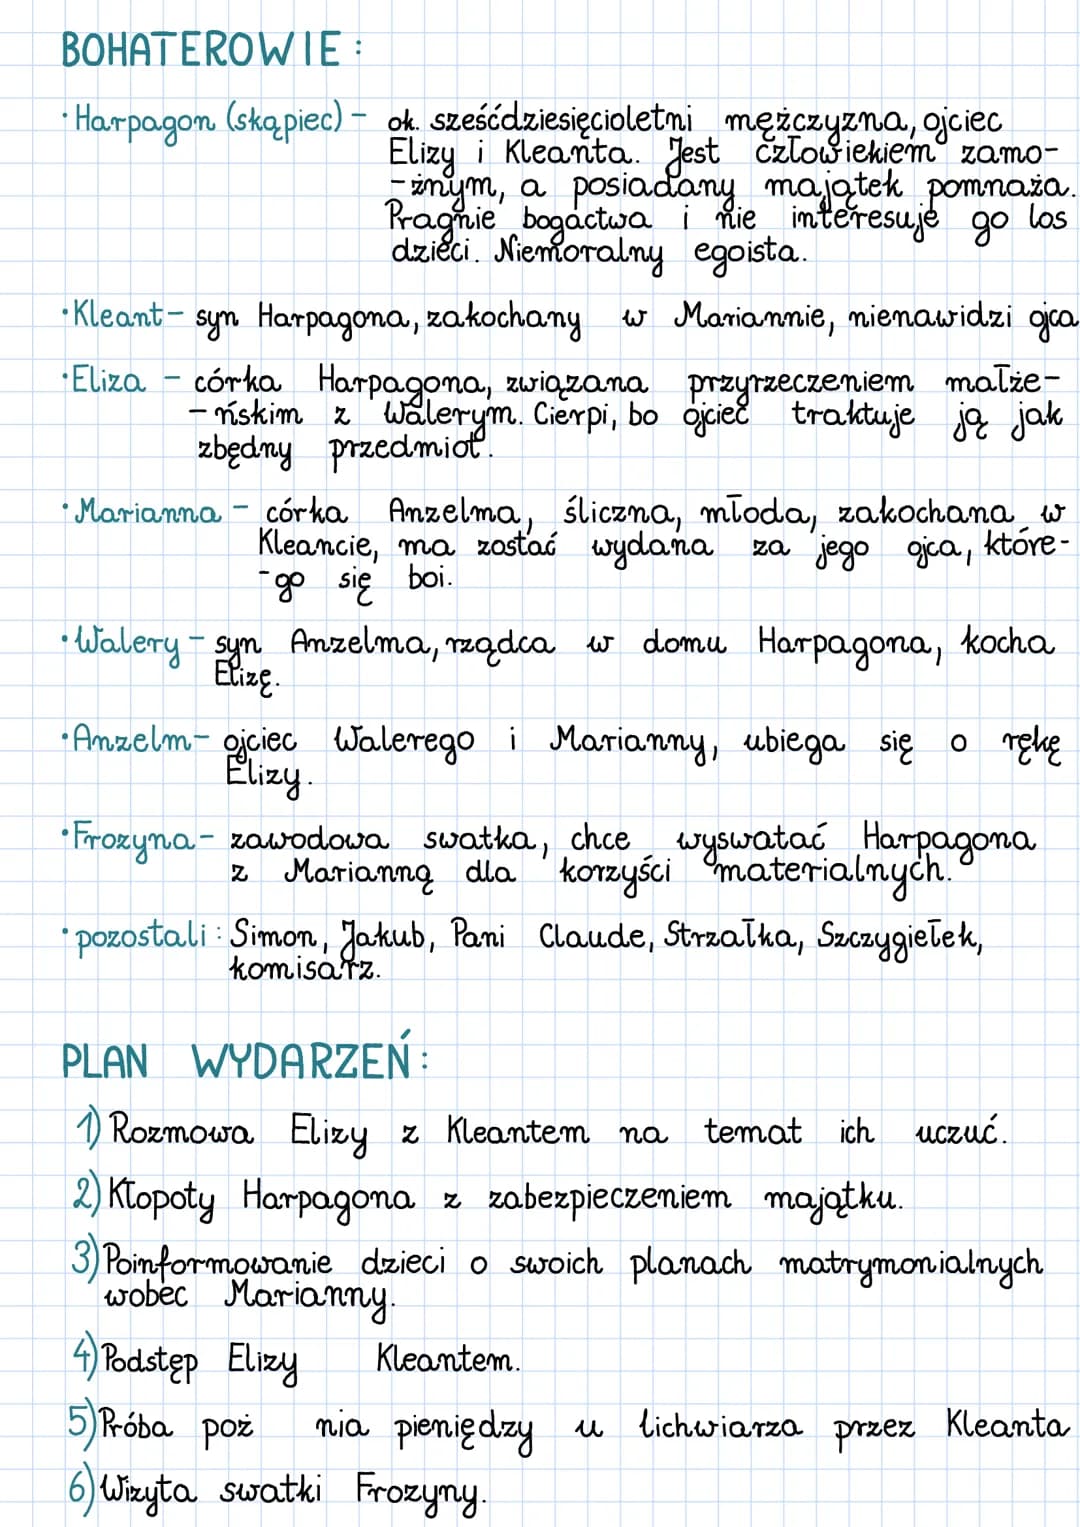 BOHATEROWIE:
•Harpagon (skąpiec) - ok. sześćdziesięcioletni mężczyzna, ojciec
Elizy i Kleanta. Jest człowiekiem zamo-
-żnym, a posiadany majątek pomnaża.
Pragnie bogactwa i nie interesuje go los
dzieci. Niemoralny egoista.
•Kleant- syn Harpagona, zakochany w Mariannie, nienawidzi ojca
•Eliza - córka Harpagona, związana przyrzeczeniem małże-
-ńskim z Walerym. Cierpi, bo ojciec traktuje ją jak
zbędny przedmiot.
•Marianna - córka Anzelma, śliczna, młoda, zakochana w
Kleancie, ma zostać wydana za jego ojca, które-
-go się boi.
•Walery - syn Anzelma, rządca w domu Harpagona, kocha
Elizę.
•Anzelm- ojciec Walerego i Marianny, ubiega się o rękę
Elizy.
•Frozyna- zawodowa swatka, chce wyswatać Harpagona
z Marianną dla korzyści materialnych.
•pozostali: Simon, Jakub, Pani Claude, Strzałka, Szczygiełek,
komisarz.
PLAN WYDARZEŃ:
1) Rozmowa Elizy z Kleantem na temat ich uczuć.
2) Kłopoty Harpagona z zabezpieczeniem majątku.
3) Poinformowanie dzieci o swoich planach matrymonialnych
wobec Marianny.
4) Podstęp Elizy Kleantem.
5) Próba poż nia pieniędzy u lichwiarza przez Kleanta
6) Wizyta swatki Frozyny.